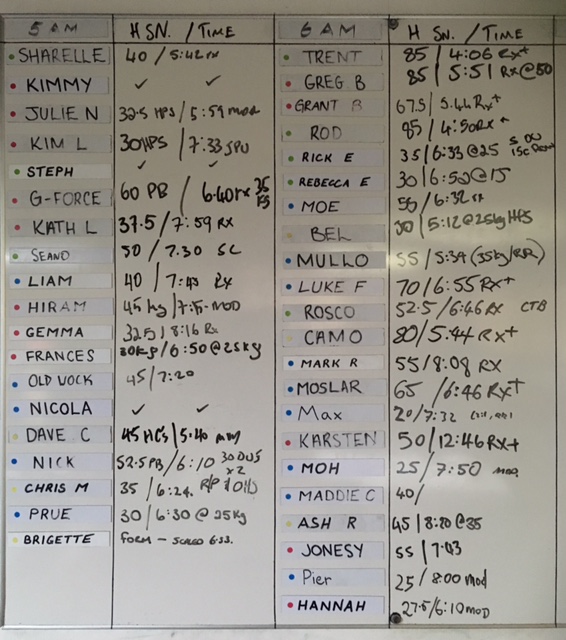 5 AM H SN. / TIME
SHARELLE 40 / 5:42 rx
KIMMY ✓ ✓
JULIE N 32.5 HPS / 5:59 MOD
KIM L 30 HPS / 7:33 SPU
STEPH ✓ ✓
G-FORCE 60 PB / 6.40 rx 35
KATH L 37.5 / 7:59 RX
SEANO 50 / 7.30 SC
LIAM 40 / 7:45 Rx
HIRAM 45 kg / MOD
GEMMA 32.5 / 8:16 Rx
FRANCES 30kgs / 6:50 @ 25kg
OLD 45 / 7:20
NICOLA ✓ ✓
DAVE C 45 / 5:40
NICK 52.5 PB / 6:10 30 DU'S x2
CHRIS M 35 / 6:24.
PRUE 30 / 6:30 @ 25kg
BRIGETTE FORM - 6.33.
6 AM H SN. / TIME
TRENT 85 / 4:06 Rx+
GREG B 85 / 5:51 Rx@50
GRANT B 67.5 / 5.44 Rx+
ROD 85 / 4:50 Rx+
RICK E 35 / 6:33 @25
REBECCA E 30 / 6:50 @15
MOE 55 / 6:32 rx
BEL 30 / 5:12 @25kg HPS
MULLO 55 / 5:34 (35kg/RR)
LUKE F 70 / 6:55 RX+
ROSCO 52.5 / 6:46 RX CTB
CAMO 80 / 5.44 RX+
MARK R 55 / 8:08 RX
MOSLAR 65 / 6:46 RX+
Max 20 / 7:32
KARSTEN 50 / 12:46 RX+
MOH 25 / 7:50 MOD
MADDIE C 40 /
ASH R 45 / 8:20 @35
JONESY 55 / 7:03
Pier 25 / 8:00 mod
HANNAH 27.5 / 6:10 MOD